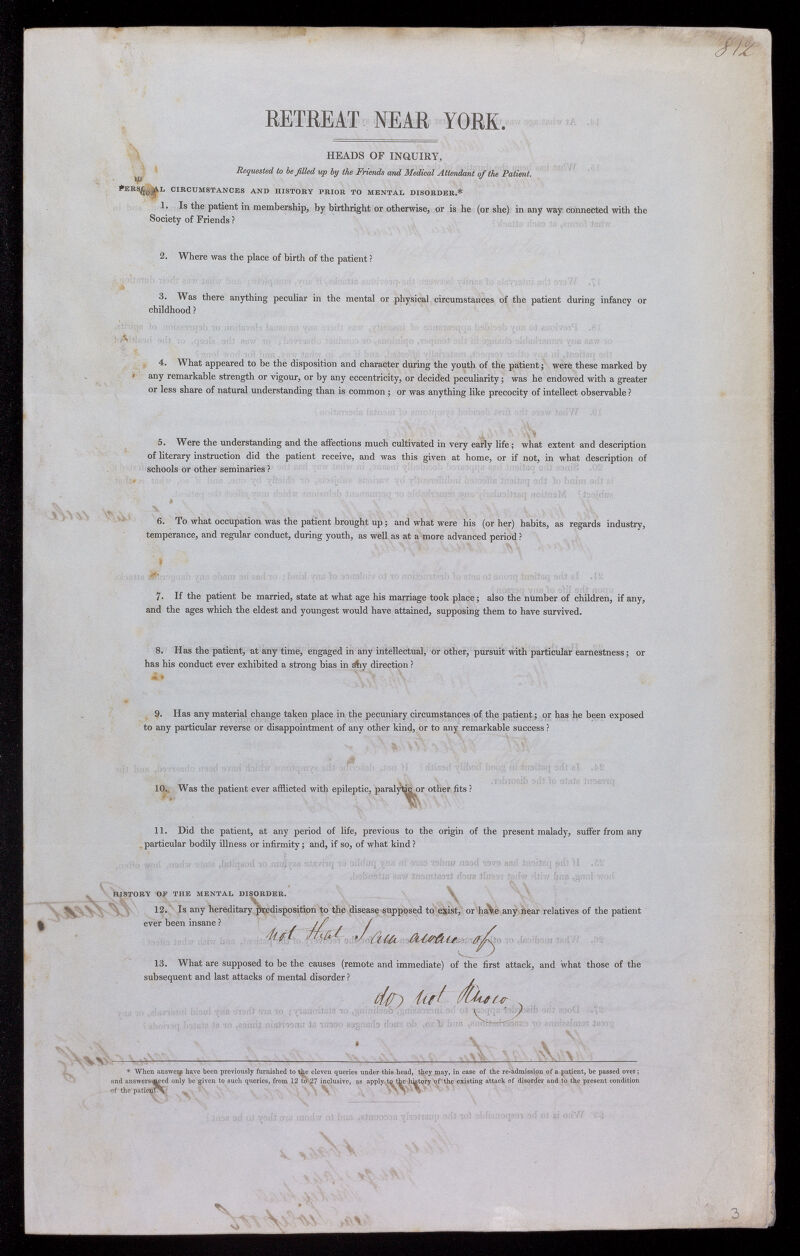 812
RETREAT NEAR YORK.
HEADS OF INQUIRY,
Requested to be filled up by the Friends and Medical Attendant of the Patient.
PERSONAL CIRCUMSTANCES AND HISTORY PRIOR TO MENTAL DISORDER.*
1. Is the patient in membership, by birthright or otherwise, or is he (or she) in any way connected with the
Society of Friends?
2. Where was the place of birth of the patient?
3. Was there anything peculiar in the mental or physical circumstances of the patient during infancy or
childhood?
4. What appeared to be the disposition and character during the youth of the patient; were these marked by
any remarkable strength or vigour, or by any eccentricity, or decided peculiarity; was he endowed with a greater
or less share of natural understanding than is common; or was anything like precocity of intellect observable?
5. Were the understanding and the affections much cultivated in very early life; what extent and description
of literary instruction did the patient receive, and was this given at home, or if not, in what description of
schools or other seminaries?
6. To what occupation was the patient brought up; and what were his (or her) habits, as regards industry,
temperance, and regular conduct, during youth, as well as at a more advanced period?
7. If the patient be married, state at what age his marriage took place; also the number of children, if any,
and the ages which the eldest and youngest would have attained, supposing them to have survived.
8. Has the patient, at any time, engaged in any intellectual, or other, pursuit with particular earnestness; or
has his conduct ever exhibited a strong bias in any direction?
9. Has any material change taken place in the pecuniary circumstances of the patient; or has he been exposed
to any particular reverse or disappointment of any other kind, or to any remarkable success?
10. Was the patient ever afflicted with epileptic, paralytic or other fits?
11. Did the patient, at any period of life, previous to the origin of the present malady, suffer from any
particular bodily illness or infirmity; and, if so, of what kind?
HISTORY OF THE MENTAL DISORDER.
12. Is any hereditary predisposition to the disease supposed to exist, or have any near relatives of the patient
ever been insane?
not that I am aware of
13. What are supposed to be the causes (remote and immediate) of the first attack, and what those of the
subsequent and last attacks of mental disorder?
do not Know
* When answers have been previously furnished to the eleven queries under this head, they may, in case of the re-admission of a patient, be passed over;
and answers need only be given to such queries, from 12 to 27 inclusive, as apply to the history of the existing attack of disorder and to the present condition
of the patient.
3